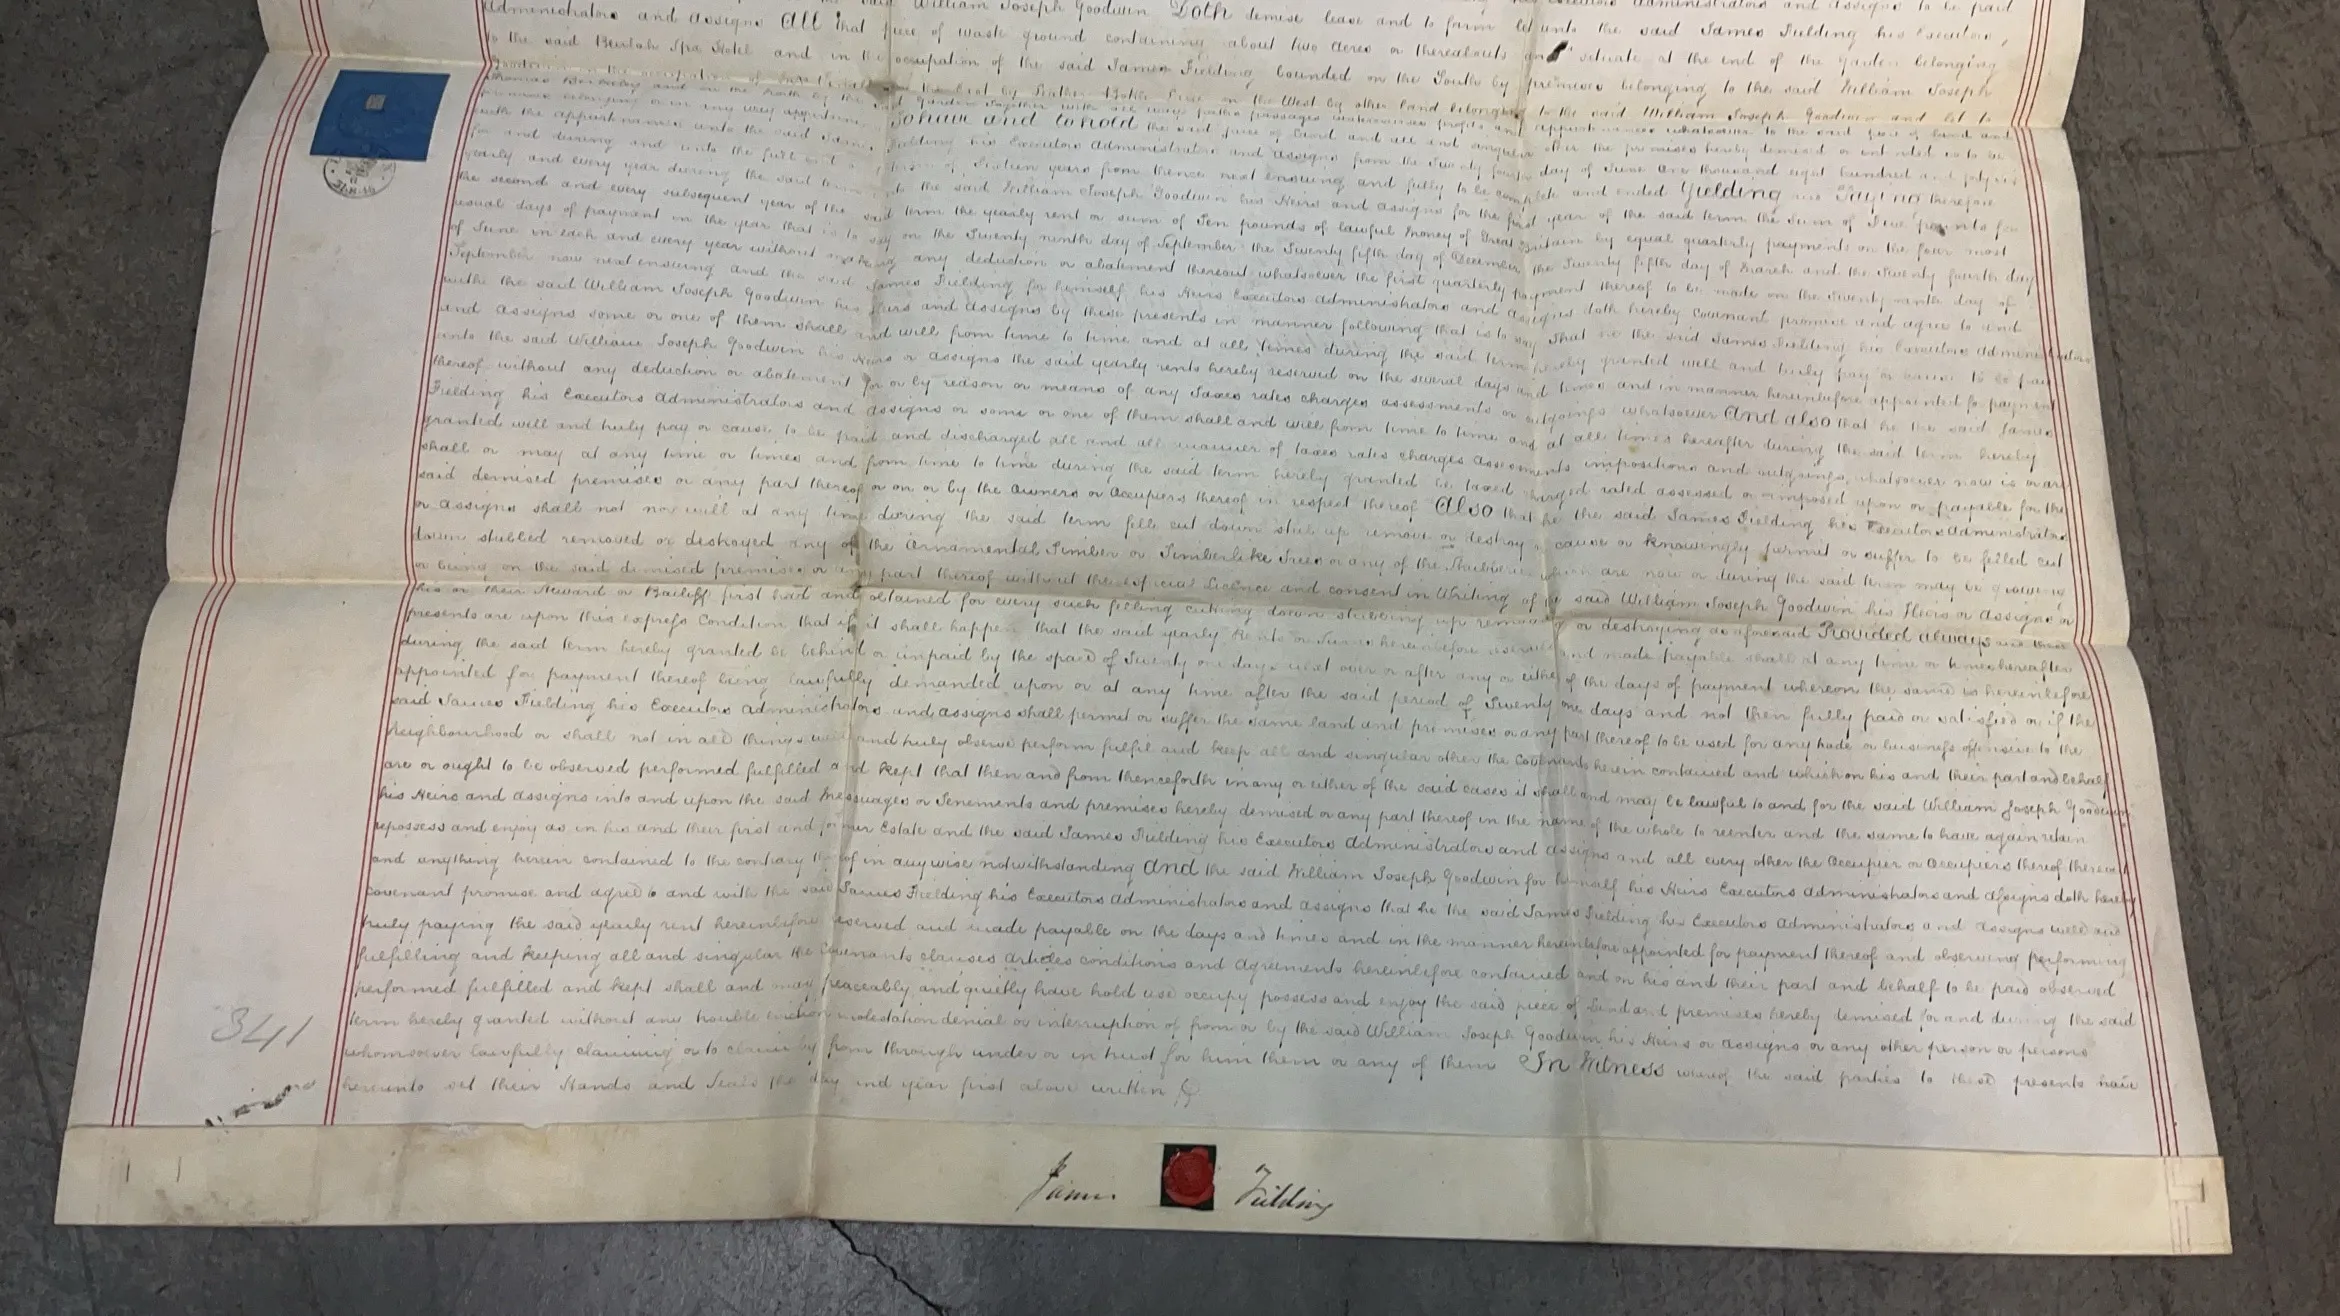 said William Joseph Goodwin Doth demise lease and to farm let unto the said James Fielding his Executors,
Administrators and assigns All that piece of waste ground containing about two acres or thereabouts and situate at the end of the Garden belonging
to the said Beulah Spa Hotel and in the occupation of the said James Fielding bounded on the South by premises belonging to the said William Joseph
Goodwin in the occupation of on the East by Leather Bottle Lane on the West by other land belonging to the said William Joseph Goodwin and let to
Thomas and on the North by the said Garden Together with all ways paths passages watercourses profits and appurtenances whatsoever to the said piece of land and
premises belonging or in any way appertaining To have and to hold the said piece of land and all and singular other the premises hereby demised or intended so to be
with the appurtenances unto the said James Fielding his Executors Administrators and assigns from the Twenty fourth day of June One thousand eight hundred and
for and during and unto the full term of years from thence next ensuing and fully to be complete and ended Yielding and Paying therefore
yearly and every year during the said term unto the said William Joseph Goodwin his Heirs and assigns for the first year of the said term the Sum of Five pounds for
the second and every subsequent year of the said term the yearly rent or sum of Ten pounds of lawful money of Great Britain by equal quarterly payments on the four most
usual days of payment in the year that is to say on the Twenty ninth day of September the Twenty fifth day of December the Twenty fifth day of March and the Twenty fourth day
of June in each and every year without making any deduction or abatement thereout whatsoever the first quarterly payment thereof to be made on the Twenty ninth day of
September now next ensuing and the said James Fielding for himself his Heirs Executors Administrators and assigns doth hereby Covenant promise and agree to and
with the said William Joseph Goodwin his Heirs and assigns by these presents in manner following that is to say That he the said James Fielding his Executors Administrators
and assigns some or one of them shall and will from time to time and at all times during the said term hereby granted well and truly pay or cause to be paid
unto the said William Joseph Goodwin his Heirs or assigns the said yearly rents hereby reserved on the several days and times and in manner hereinbefore appointed for payment
thereof without any deduction or abatement for or by reason or means of any Taxes rates charges assessments or outgoings whatsoever And also that he the said James
Fielding his Executors Administrators and assigns or some or one of them shall and will from time to time and at all times hereafter during the said term hereby
granted well and truly pay or cause to be paid and discharged all and all manner of taxes rates charges assessments impositions and outgoings whatsoever now is or are
shall or may at any time or times and from time to time during the said term hereby granted be taxed charged rated assessed or imposed upon or payable for the
said demised premises or any part thereof or on or by the Owners or Occupiers thereof in respect thereof Also that he the said James Fielding his Executors Administrators
or assigns shall not nor will at any time during the said term fell cut down stub up remove or destroy or cause or knowingly permit or suffer to be felled cut
down stubbed removed or destroyed any of the Ornamental Timber or Timberlike Trees or any of the Shubberies which are now or during the said term may be growing
or being on the said demised premises or any part thereof without the especial Licence and consent in Writing of the said William Joseph Goodwin his Heirs or Assigns or
his or their Steward or Bailiff first had and obtained for every such felling cutting down stubbing up removing or destroying as aforesaid Provided always and these
presents are upon this express Condition that if it shall happen that the said yearly Rents or Sums hereinbefore reserved and made payable shall at any time or times hereafter
during the said term hereby granted be behind or unpaid by the space of Twenty one days next over or after any or either of the days of payment whereon the same is hereinbefore
appointed for payment thereof being lawfully demanded upon or at any time after the said period of Twenty one days and not then fully paid or satisfied or if the
said James Fielding his Executors Administrators and assigns shall permit or suffer the same land and premises or any part thereof to be used for any trade or business offensive to the
Neighbourhood or shall not in all things well and truly observe perform fulfil and keep all and singular other the Covenants herein contained and which on his and their part and behalf
are or ought to be observed performed fulfilled and kept that then and from thenceforth in any or either of the said cases it shall and may be lawful to and for the said William Joseph Goodwin
his Heirs and Assigns into and upon the said Messuages or Tenements and premises hereby demised or any part thereof in the name of the whole to reenter and the same to have again retain
repossess and enjoy as in his and their first and former Estate and the said James Fielding his Executors Administrators and assigns and all every other the Occupier or Occupiers thereof
and anything herein contained to the contrary thereof in anywise notwithstanding And the said William Joseph Goodwin for himself his Heirs Executors Administrators and Assigns doth hereby
covenant promise and agree to and with the said James Fielding his Executors Administrators and assigns that he the said James Fielding his Executors Administrators and assigns well and
truly paying the said yearly rent hereinbefore reserved and made payable on the days and times and in the manner hereinbefore appointed for payment thereof and observing performing
fulfilling and keeping all and singular the Covenants clauses Articles conditions and Agreements hereinbefore contained and on his and their part and behalf to be paid observed
performed fulfilled and kept shall and may peaceably and quietly have hold use occupy possess and enjoy the said piece of Land and premises hereby demised for and during the said
term hereby granted without any trouble eviction molestation denial or interruption of from or by the said William Joseph Goodwin his Heirs or assigns or any other person or persons
whomsoever lawfully claiming or to claim by from through under or in trust for him them or any of them In Witness whereof the said parties to these presents have
hereunto set their Hands and Seals the day and year first above written
341
James Fielding